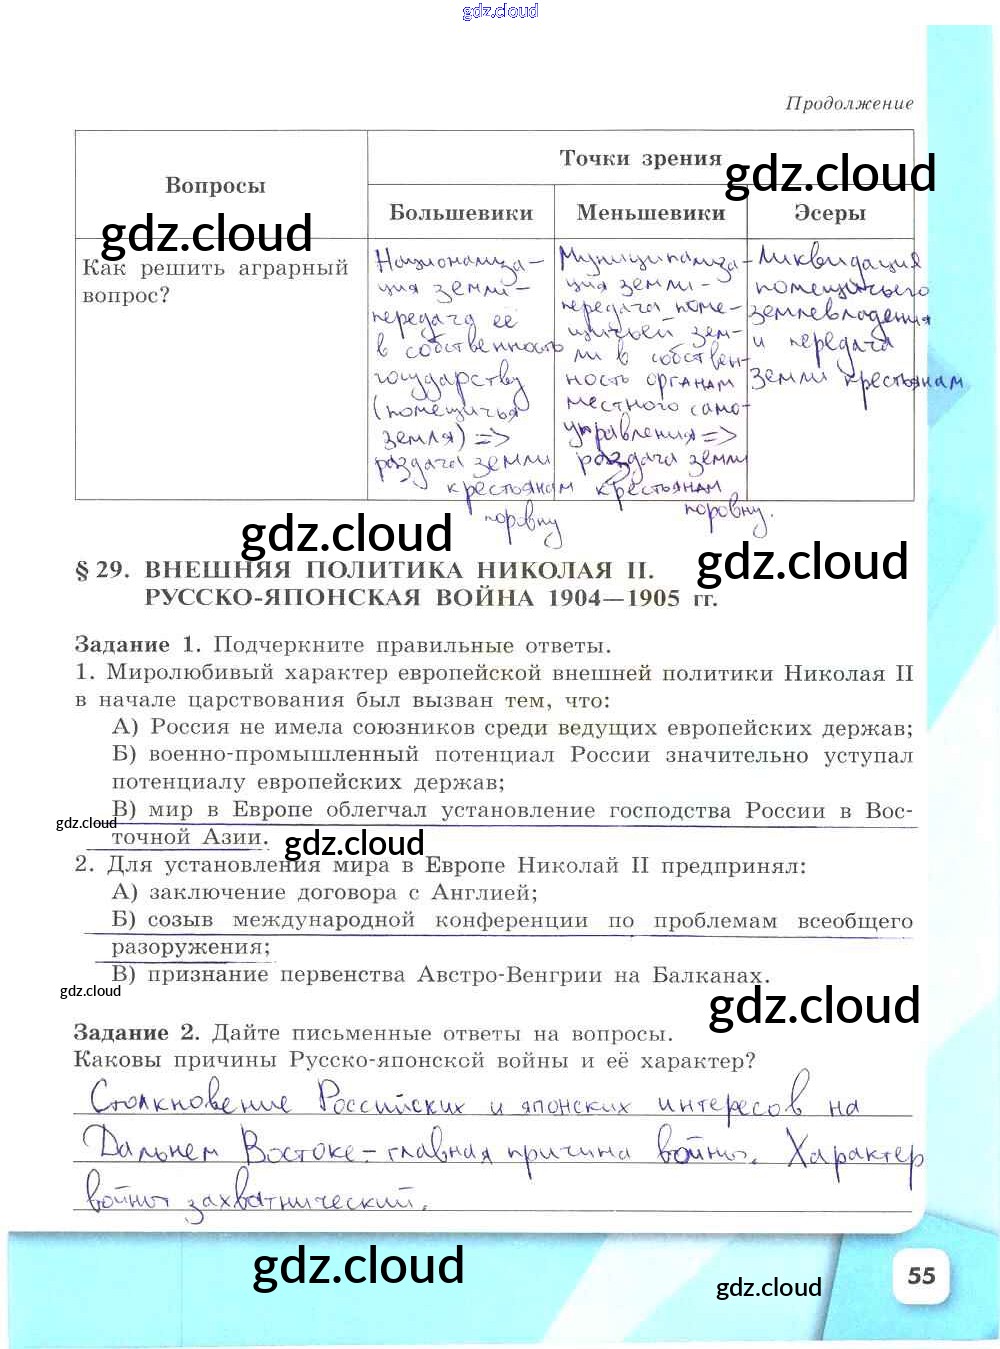 gdz.cloud
Продолжение
Вопросы
Точки зрения
gdz.cloud
Большевики
Меньшевики
Эсеры
gdz.cloud
Как решить аграрный
вопрос?
Национализа-
ция земли -
передача её
в собственность
государству
(помещичья
земля) =>
раздача земли
крестьянам
поровну
Муниципализа-
ция земли -
передача поме-
щичьей зем-
ли в собствен-
ность органам
местного само-
управления =>
раздача земли
крестьянам
поровну.
Ликвидация
помещичьего
землевладения
и передача
земли крестьянам
gdz.cloud
gdz.cloud
§ 29. ВНЕШНЯЯ ПОЛИТИКА НИКОЛАЯ II.
РУССКО-ЯПОНСКАЯ ВОЙНА 1904—1905 гг.
Задание 1. Подчеркните правильные ответы.
1. Миролюбивый характер европейской внешней политики Николая II
в начале царствования был вызван тем, что:
А) Россия не имела союзников среди ведущих европейских держав;
Б) военно-промышленный потенциал России значительно уступал
потенциалу европейских держав;
В) мир в Европе облегчал установление господства России в Вос-
gdz.cloud
точной Азии.
gdz.cloud
2. Для установления мира в Европе Николай II предпринял:
А) заключение договора с Англией;
Б) созыв международной конференции по проблемам всеобщего
разоружения;
В) признание первенства Австро-Венгрии на Балканах.
gdz.cloud
gdz.cloud
Задание 2. Дайте письменные ответы на вопросы.
Каковы причины Русско-японской войны и её характер?
Столкновение Российских и японских интересов на
Дальнем Востоке - главная причина войны. Характер
войны захватнический.
gdz.cloud
gdz.cloud
55